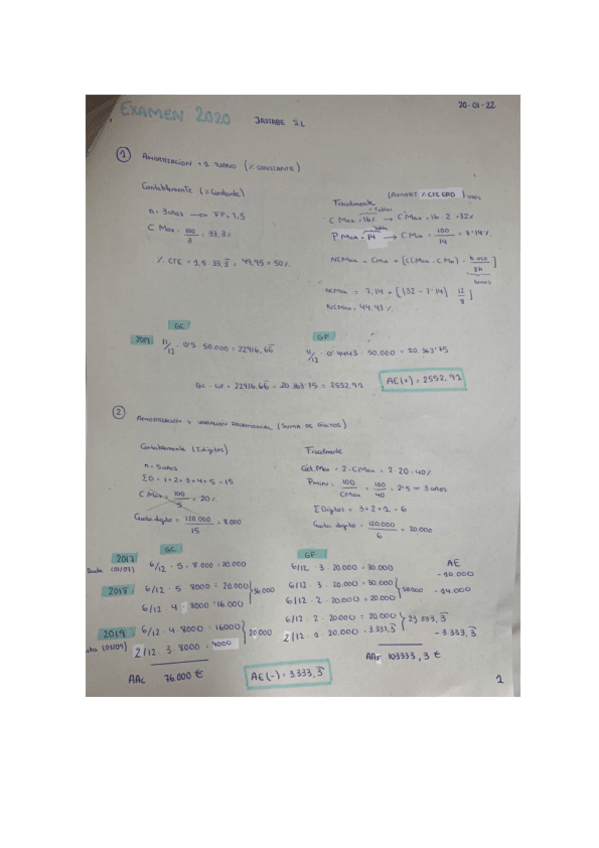 20-01-22
EXAMEN 2020 JASTABE S.L
① AMORTIZACION + 1 TURNO (% CONSTANTE)
Contablemente (% Constante)
n = 3 años → FP = 1,5
C. Max = 100/3 = 33,3%
% CTE = 1,5 · 33,3 = 49,95 = 50%
Fiscalmente (AMORT % CTE GRD)
% Tablas
C. Max = 16% → C Max = 16 · 2 = 32%
P. Max = 14 → C Min = 100/14 = 7'14%
NCMax = CMin + [(CMax - CMin) · h use/8h]
NCMax = 7,14 + [(32 - 7'14) 12/8]
NCMax = 44,43%
GC
2019 11/12 · 0'5 · 50.000 = 22916,66
GF
11/12 · 0'4443 · 50.000 = 20.363'75
GC - GF = 22916,66 - 20.363'75 = 2552,91
AE(+) = 2552,91
② AMORTIZACION Y VARIACION PATRIMONIAL (SUMA DE DÍGITOS)
Contablemente (Σ dígitos)
n = 5 años
ΣD = 1+2+3+4+5 = 15
C Max = 100/5 = 20%
Cuota dígito = 120.000/15 = 8.000
Fiscalmente
Coef. Max = 2 · CMax = 2 · 20 = 40%
Pmin = 100/CMax = 100/40 = 2'5 = 3 años
Σ Dígitos = 3+2+1 = 6
Cuota dígito = 120.000/6 = 20.000
GC
2017 6/12 · 5 · 8.000 = 20.000
2018 6/12 · 5 8000 = 20.000
6/12 · 4 · 8000 = 16.000
36.000
2019 6/12 · 4 · 8000 = 16000
2/12 · 3 · 8000 = 4000
20.000
AAc 76.000 €
GF
6/12 · 3 · 20.000 = 30.000
6/12 · 3 · 20.000 = 30.000
6/12 · 2 · 20.000 = 20.000
50.000
6/12 · 2 · 20.000 = 20.000
2/12 · 1 · 20.000 = 3.333,3
23.333,3
AAF 103333,3 €
AE
- 10.000
- 14.000
- 3.333,3
AE(-) = 3.333,3
1